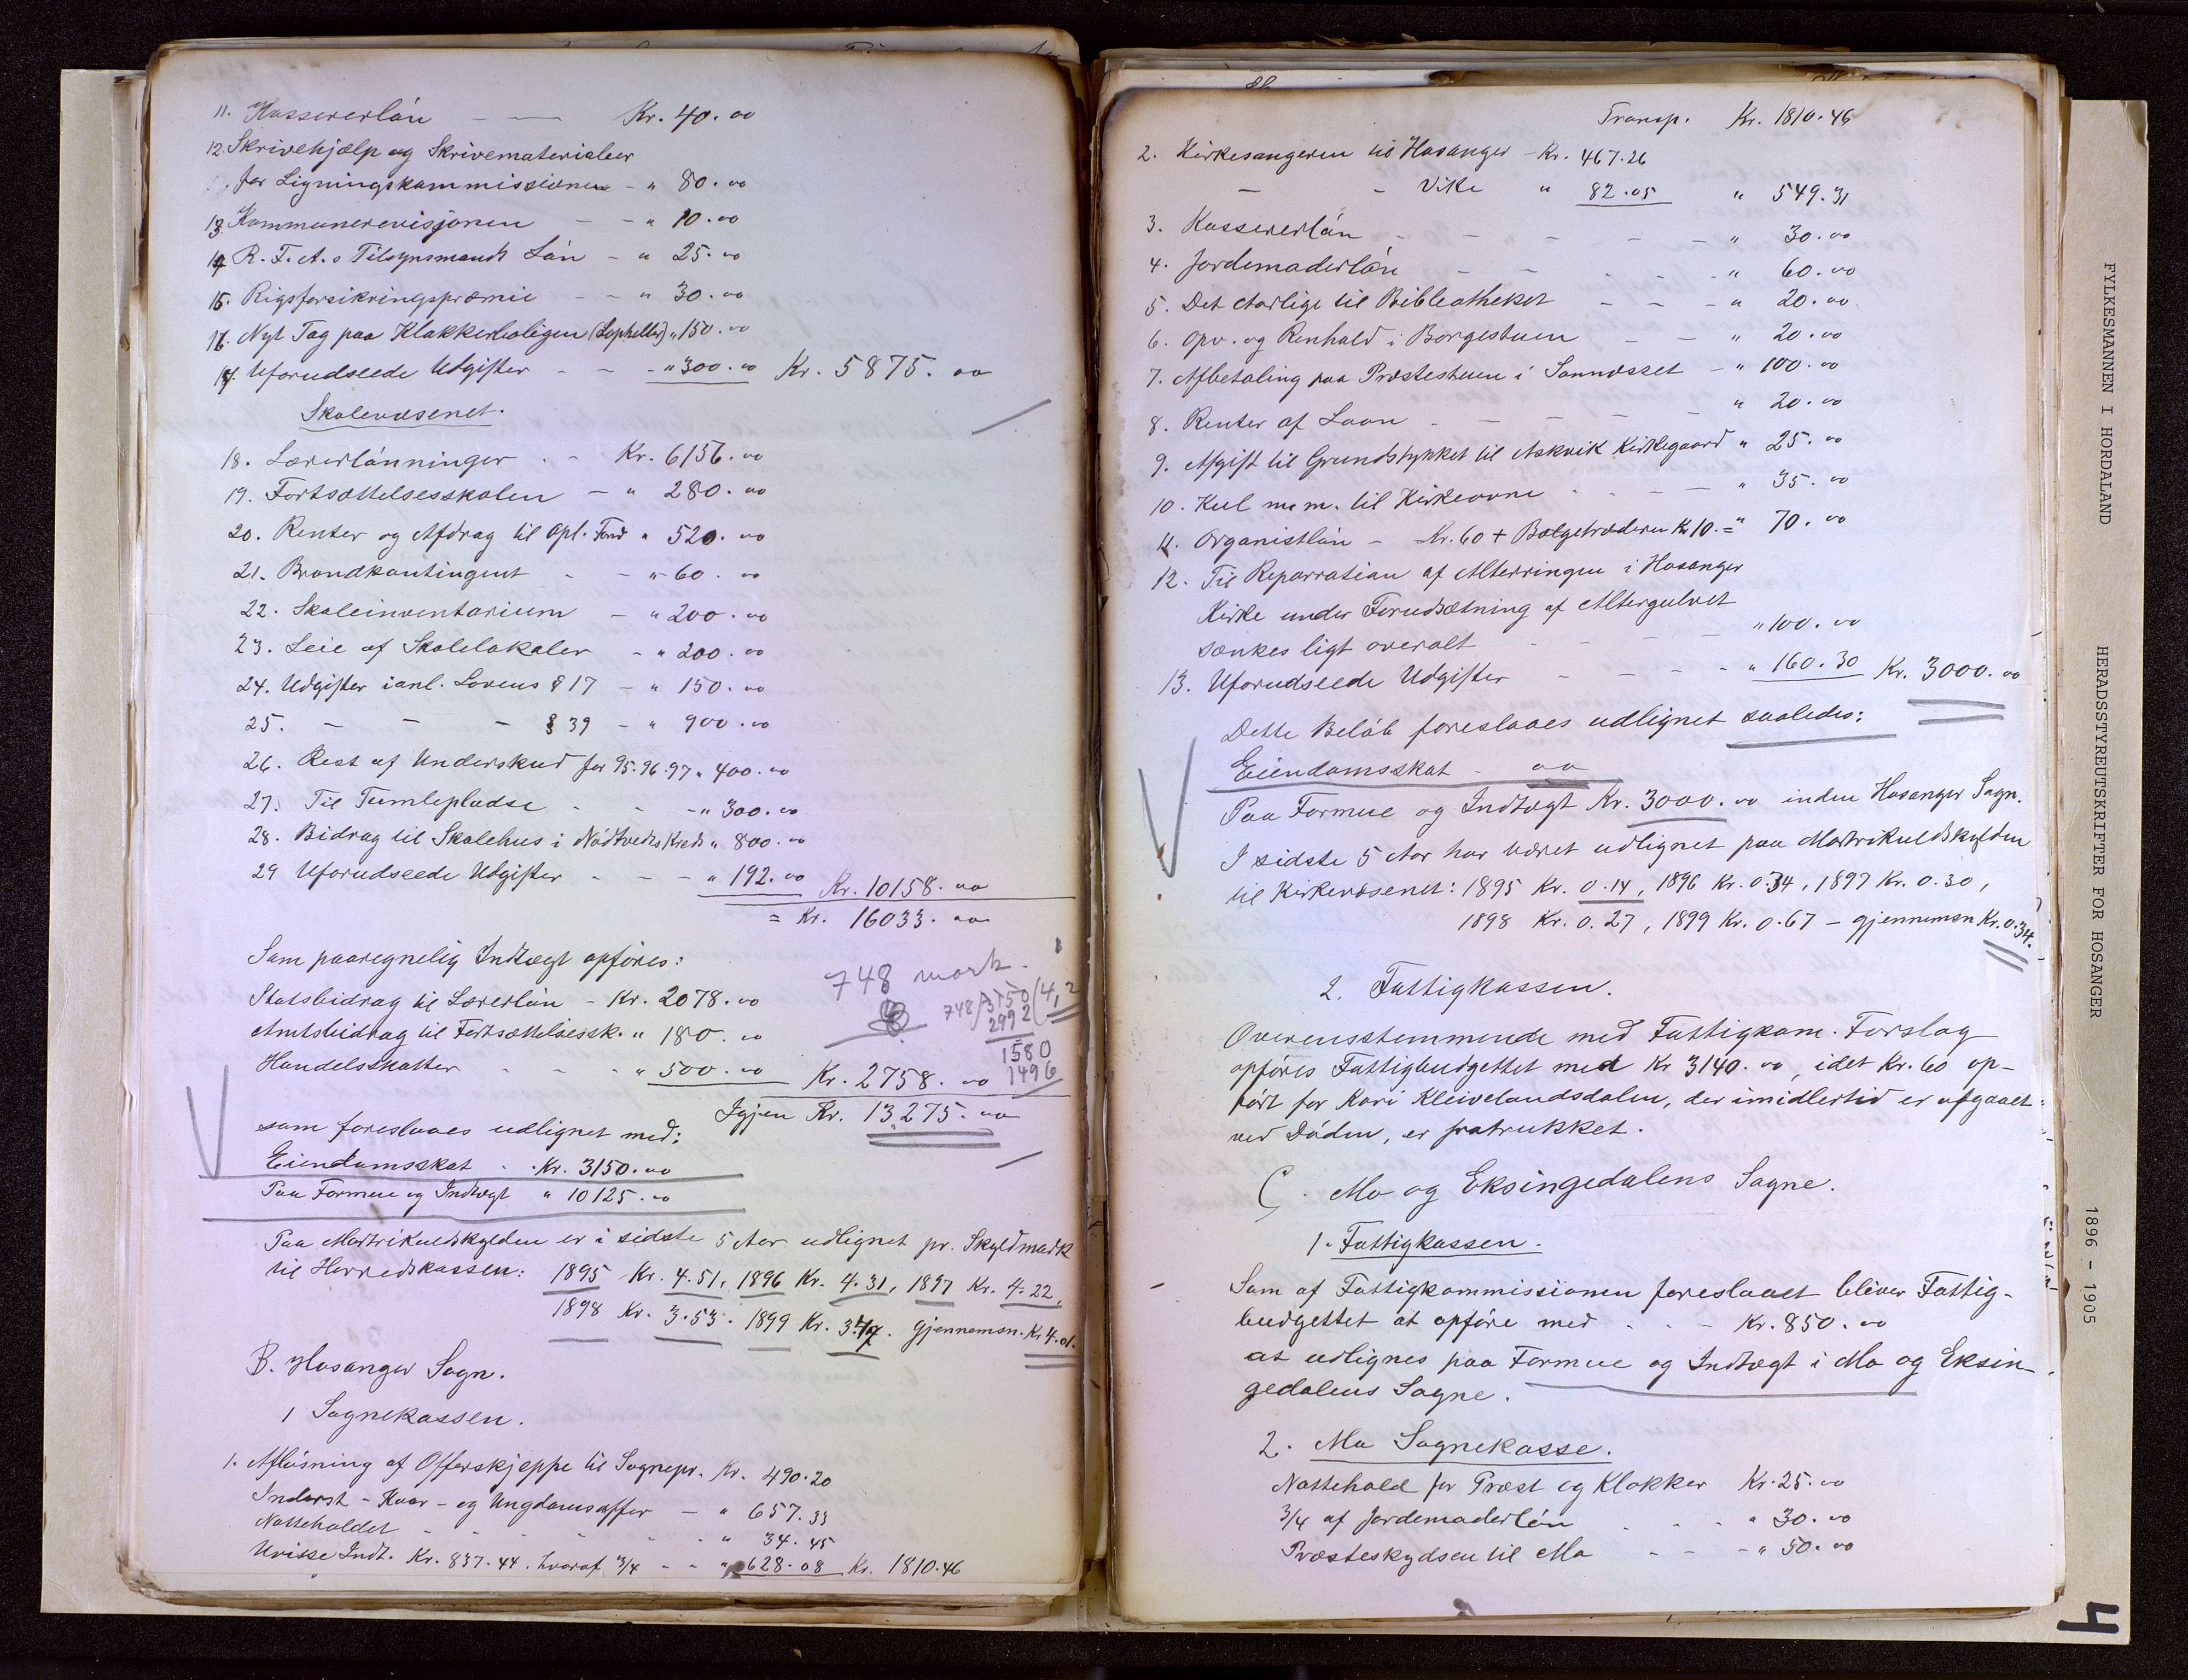 11. Kassererlön — — Kr. 40.00
12. Skrivehjælp og Skrivematerialier
for Ligningskommissionen - " 80.00
13. Kommunerevisjonen - - " 10.00
14. R. F. A. s Tilsynsmands Lön - " 25.00
15. Rigsforsikringspræmie - - " 30.00
16. Nyt Tag paa Klokkerboligen (Lopheller) " 150.00
17. Uforudseede Udgifter - - " 300.00 Kr. 5875.00
Skolevæsenet.
18. Lærerlönninger - - Kr. 6156.00
19. Fortsættelsesskolen - " 280.00
20. Renter og Afdrag til Opl. Fond " 520.00
21. Brandkontingent - - " 60.00
22. Skoleinventarium - " 200.00
23. Leie af Skolelokaler - " 200.00
24. Udgifter ianl. Lovens § 17 - " 150.00
25. - - - § 39 - " 900.00
26. Rest af Underskud for 95.96.97 " 400.00
27. Til Tumlepladse - - - " 300.00
28. Bidrag til Skolehus i Nödtvedts Kreds " 800.00
29 Uforudseede Udgifter - - - " 192.00 Kr. 10158.00
= Kr. 16033.00
Som paaregnelig Indtægt opföres:
748 mark.
Statsbidrag til Lærerlön - Kr. 2078.00
748/3150/4,2
2992
Amtsbidrag til Fortsættelsessk. " 180.00
1580
Handelsskatter - - - " 500.00 Kr. 2758.00
1496
Igjen Kr. 13275.00
som foreslaaes udlignet med:
Eiendomsskat - - Kr. 3150.00
Paa Formue og Indtægt " 10125.00
Paa Martrikulskylden er i sidste 5 Aar udlignet pr. Skyldmark
til Herredskassen: 1895 Kr. 4.51, 1896 Kr. 4.31, 1897 Kr. 4.22,
1898 Kr. 3.53. 1899 Kr. 3.47. gjennemsn. Kr 4.01.
B. Hosanger Sogn.
1 Sognekassen.
1. Aflösning af Offerskjeppe til Sognepr. Kr. 490.20
Inderst - Kaar - og Ungdomsoffer - " 657.33
Natteholdet - - - - - " 34.45
Uvisse Indt. Kr. 837.44. hvoraf 3/4 - - " 628.08 Kr. 1810.46
Transp. Kr. 1810.46
2. Kirkesangeren til Hosanger - Kr. 467.26
- - Vike " 82.05 " 549.31
3. Kassererlön - - - - - " 30.00
4. Jordemoderlön - - - - - " 60.00
5. Det Aarlige til Bibliotheket - - - " 20.00
6. Opv. og Renhold i Borgestuen - - " 20.00
7. Afbetaling paa Præstestuen i Sonnesset - " 100.00
8. Renter af Laan - - - - - " 20.00
9. Afgift til Grundstykket til Askvik Kirkegaard " 25.00
10. Kul m.m. til Kirkeovne - - - " 35.00
11. Organistlön - Kr. 60 + Bælgetræderen Kr 10. = " 70.00
12. Til Reparration af Alterringen i Hosanger
Kirke under Forudsætning af Altergulvet
sænkes ligt overalt - - - - " 100.00
13. Uforudseede Udgifter - - - - " 160.30 Kr. 3000.00
Dette Belöb foreslaaes udlignet saaledes:
Eiendomsskat - 00
Paa Formue og Indtægt Kr. 3000.00 inden Hosanger Sogn.
I sidste 5 Aar har været udlignet paa Martrikulskylden
til Kirkevæsenet: 1895 Kr. 0.14, 1896 Kr. 0.34, 1897 Kr. 0.30,
1898 Kr. 0.27, 1899 Kr. 0.67 - gjennemsn Kr. 0.34.
2. Fattigkassen.
Overensstemmende med Fattigkom. Forslag
opföres Fattigbudgettet med Kr 3140.00, idet Kr. 60 op-
fört for Kari Kleivelandsdalen, der imidlertid er afgaaet
ved Döden, er fratrukket.
C. Mo og Eksingedalens Sogne.
1. Fattigkassen.
Som af Fattigkommissionen foreslaaet bliver Fattig-
budgettet at opföre med - - - Kr. 850.00
at udlignes paa Formue og Indtægt i Mo og Eksin-
gedalens Sogne.
2. Mo Sognekasse.
Nattehold for Præst og Klokker Kr. 25.00
3/4 af Jordemoderlön - - - " 30.00
Præsteskydsen til Mo - - - " 50.00
FYLKESMANNEN I HORDALAND HERADSSTYREUTSKRIFTER FOR HOSANGER 1896 - 1905
4